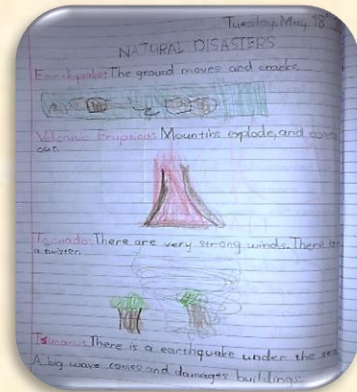 Tuesday, May 18
NATURAL DISASTERS
Earthquake: The ground moves and cracks.
Volcanic Eruption: Mountins explode, and
out.
Tornado: There are very strong winds. There
a twister.
There is a earthquake under the sea
A big wave comes and damages buildings.